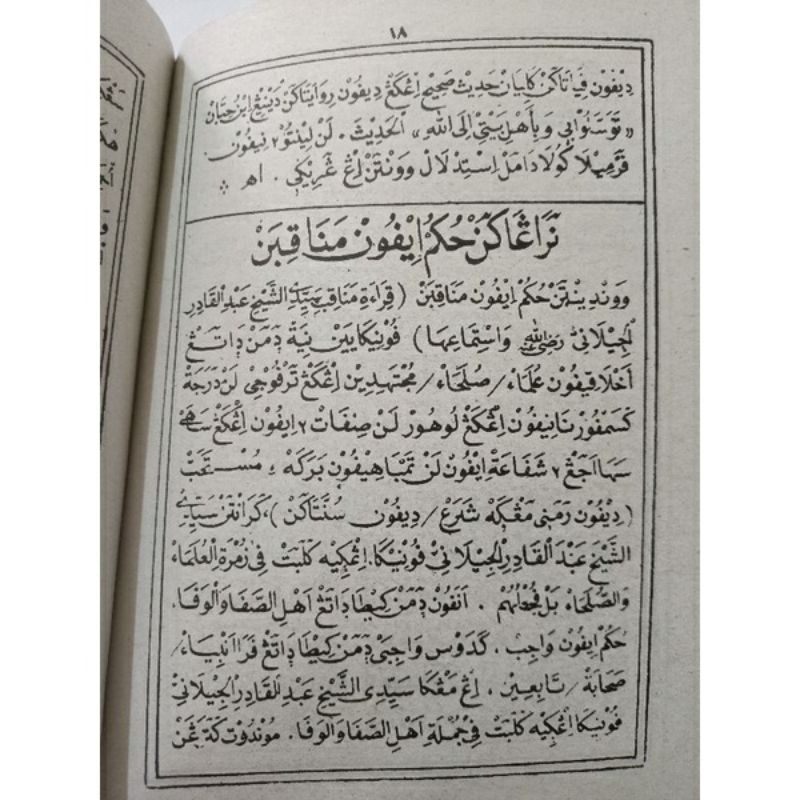 ١٨
ديفون ڤياتاكن كليان حديث صحيح اڠكڠ ديفون روايتاكن دينيڠ ابن حبان
«توسلوا بي وبأهل بيتي إلى الله» الحديث . لن لينتو٢ نيفون
قرميلا كولا دامل استدلال وونتن اڠ ڠريكي . اهـ
نراڠاكن حكم ايفون مناقبن
ووندينتن حكم ايفون مناقبن (قراءة مناقب سيدي الشيخ عبد القادر
الجيلاني رضي الله واستماعها) فونيكا يين نية دمن داتڠ
أخلاقيفون علماء/ صلحاء/ مجتهدين اڠكڠ ترفوجي لن درجة
كسمفورنانيفون اڠكڠ لوهور لن صفات٢ ايفون اڠكڠ ساهي
سها اجڠ٢ شفاعة ايفون لن تمباهيفون بركه ؛ مستحب
(ديفون رمني مڠكه شرع/ ديفون سنتاكن)، كرانتن سيدي
الشيخ عبد القادر الجيلاني فونيكا. اڠكيه كلبت في زمرة العلماء
والصلحاء بل فحولهم . انفون دمن كيطا داتڠ اهل الصفا والوفا.
حكم ايفون واجب . كدوس واجبي دمن كيطا داتڠ فرا انبياء/
صحابة/ تابعين. اڠ مڠكا سيدي الشيخ عبد القادر الجيلاني
فونيكا اڠكيه كلبت في جملة اهل الصفا والوفا. موندوت كة ڠن